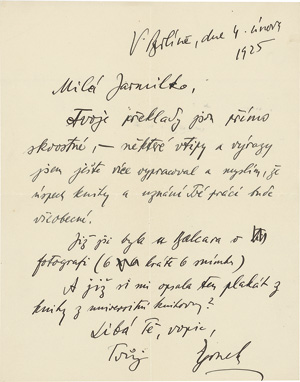 V Bílině, dne 4. února
1925
Milá Jarmilko,
Tvoje překlady jsou přímo
skvostné, – některé vtipy a výrazy
jsem ještě více vypracoval a myslím, že
úspěch knihy a uznání Tvé práce bude
všeobecné.
Již jsi byla u Balcara o
fotografi (6 kráte 6 snímků)
A již si mi opsala ten plakát z
knihy z universitní knihovny?
Líbá Tě,
Tvůj